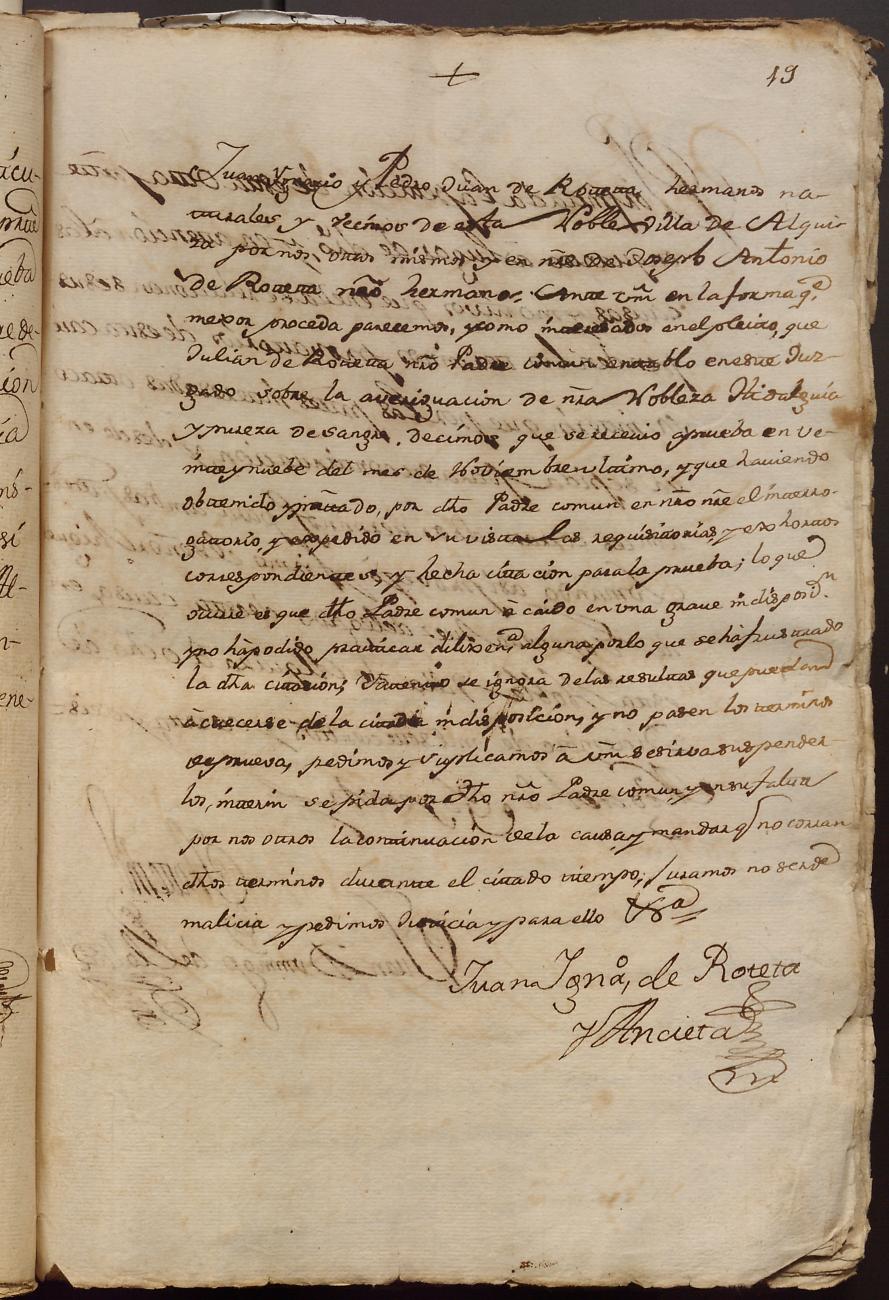 19
Juan Ygnacio y Pedro Juan de Roteta hermanos na-
turales y vecinos de esta Noble Villa de Alqui-
za por nos, otros mismos y en nre de Joseph Antonio
de Roteta nrô hermano, Ante vm̃ en la forma q.e
mexor proceda parecemos, y como interesados en el pleito, que
Julian de Roteta nrô Padre comun entablo en este Juz-
gado sobre la averiguacion de nrâ Nobleza Hidalguia
y pureza de sangre, decimos que se recivio aprueba en ve-
inte y nuebe del mes de Noviembre ultimo, y que haviendo
obtenido y por dho Padre comun en nrô nre el interro-
gatorio, y expedido en su vista las requisitorias, y exhortos
correspondientes, y hecha citacion para la prueba; lo que
ocurre es que dho Padre comun à caido en una grave indispos.n
y no hà podido practicar dilixen.a alguna por lo que se hà frustrado
la dha citacion; Y atento se ignora de las resultas que puedan
acrecerse de la citada indisposicion, y no pasen los terminos
de prueva, pedimos y suplicamos à vm̃ se sirva suspender-
los, interin se pida por dho nrô Padre comun, y en su falta
por nos otros la continuacion de la causa y mandar q no corran
dhos terminos durante el citado tiempo; Juramos no ser de
malicia y pedimos Justicia y para ello &a
Juan Ygnâ, de Roteta
y Ancieta